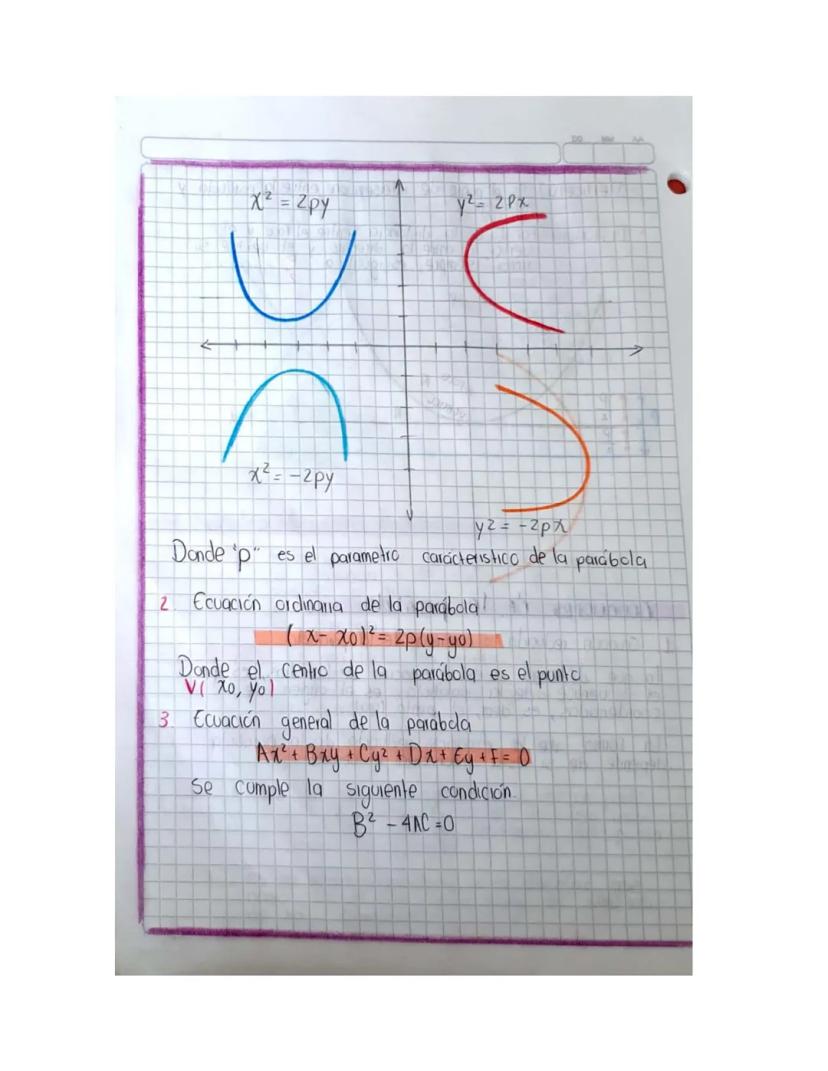 DD MM AA
x² = 2py
y² = 2Px
x² = -2py
y² = -2px
Donde "p" es el parametro carácteristico de la parábola
2. Ecuación ordinaria de la parábola
(x - x0)² = 2p(y - y0)
Donde el centro de la parábola es el punto
V( x0, y0)
3. Ecuación general de la parábola
Ax² + Bxy + Cy² + Dx + Ey + F = 0
Se cumple la siguiente condición.
B² - 4AC = 0